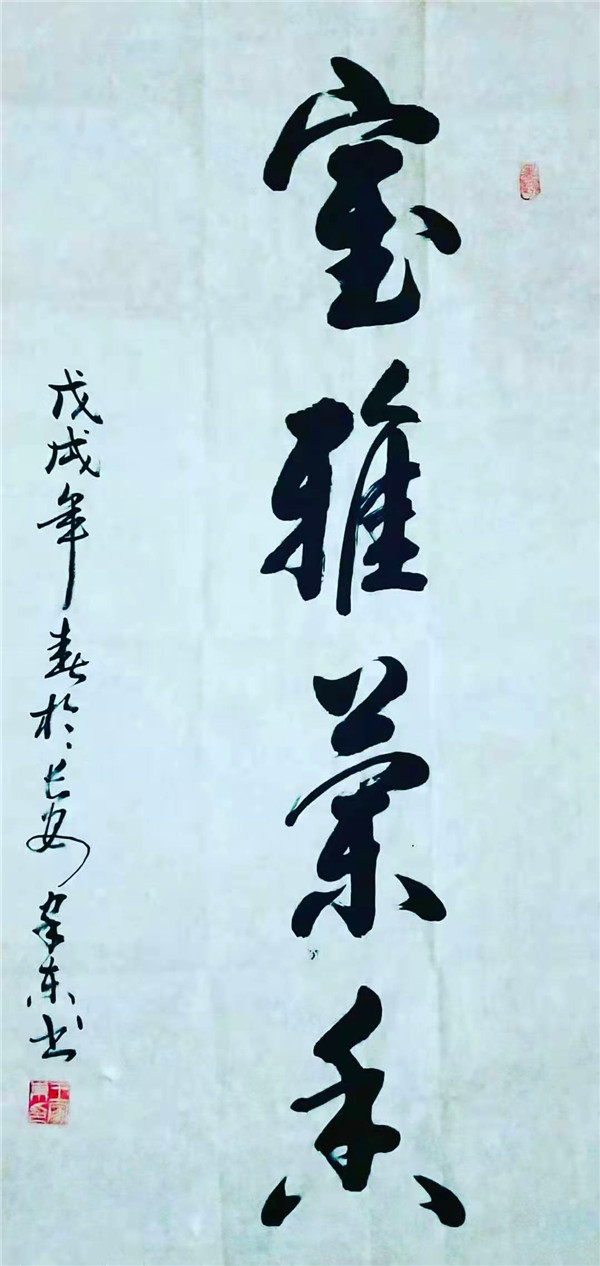 室雅兰香
戊戌年春於长安家东书